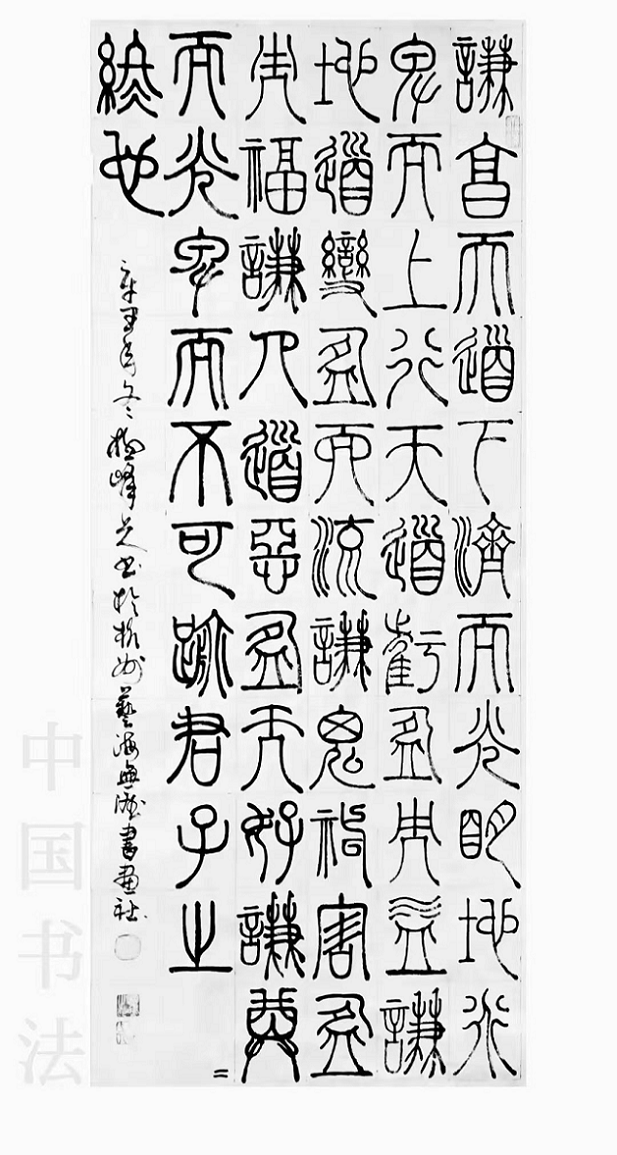 謙亨天道下濟而光明地道
卑而上行天道虧盈而益謙
地道變盈而流謙鬼神害盈
而福謙人道惡盈而好謙尊
而光卑而不可踰君子之
終也
年冬峰書於杭州藝海無涯書畫社
中国书法